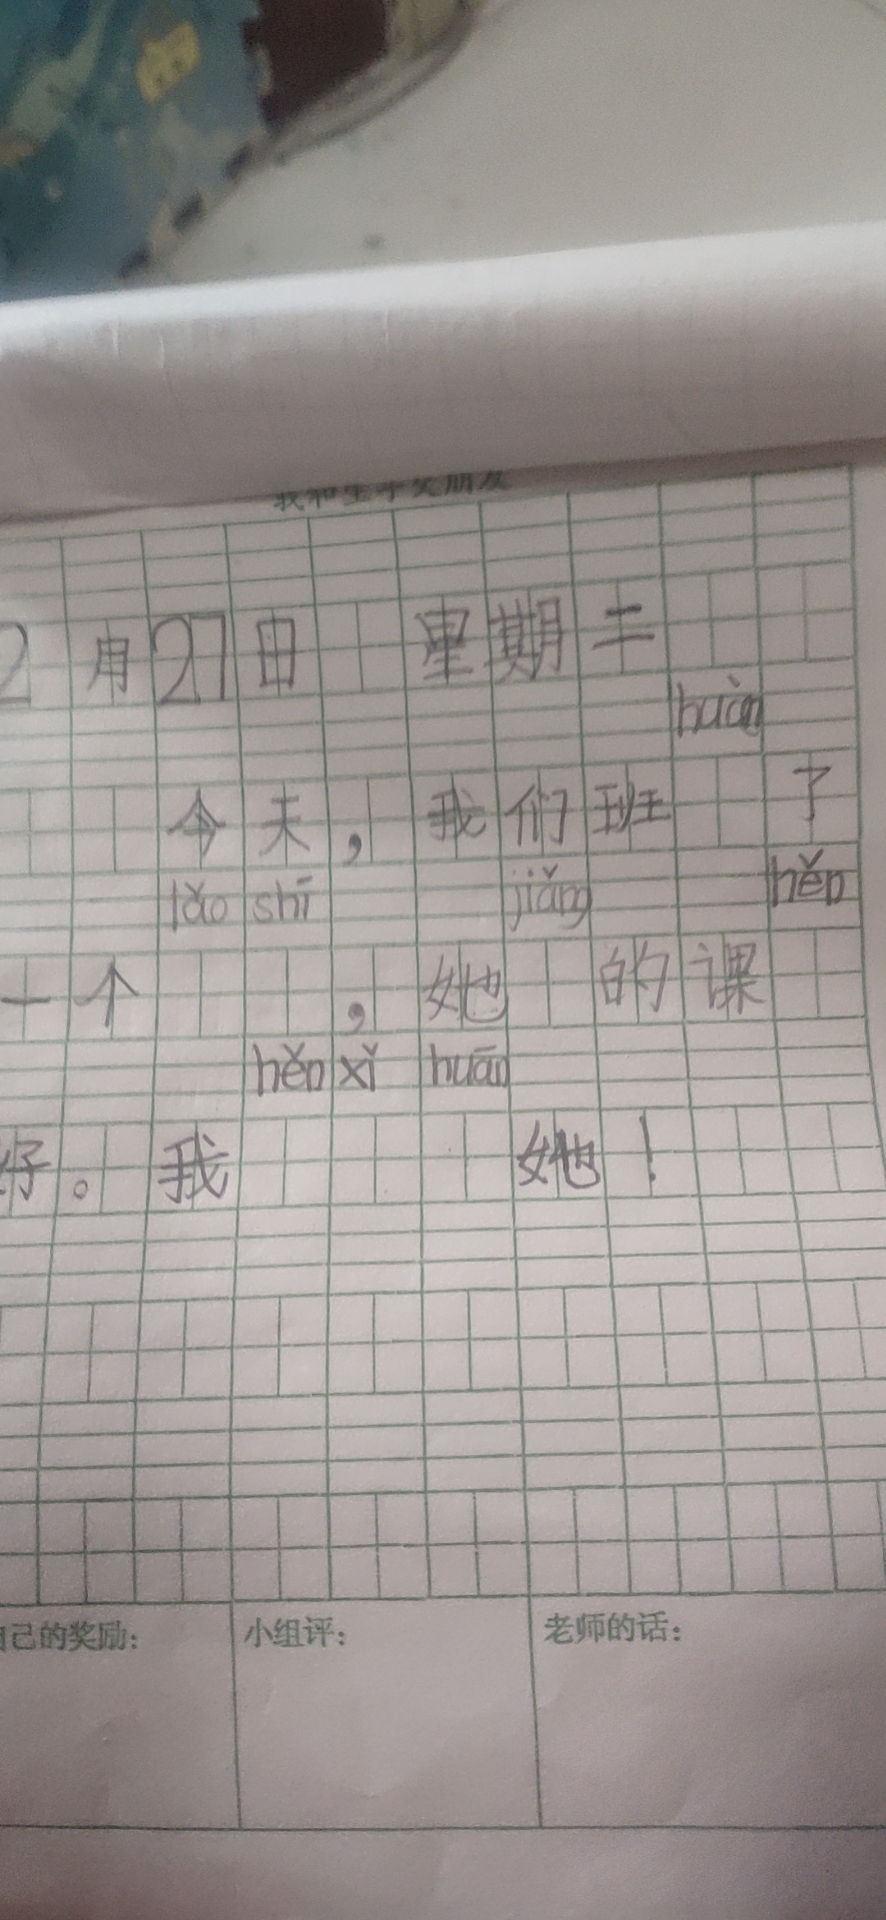 我和生字交朋友
2月27日 星期二
huàn
今天，我们班 了
lǎo shī jiǎng hěn
一个 ，她 的课
hěn xǐ huān
好。我 她！
自己的奖励： 小组评： 老师的话：